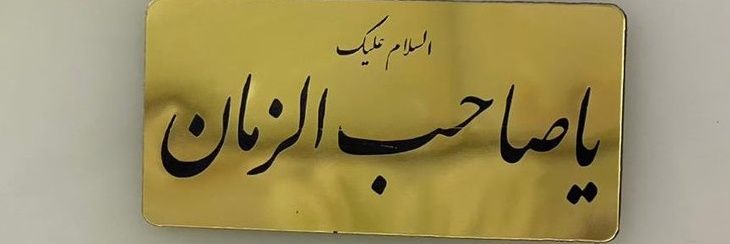 السلام علیک
یا صاحب الزمان